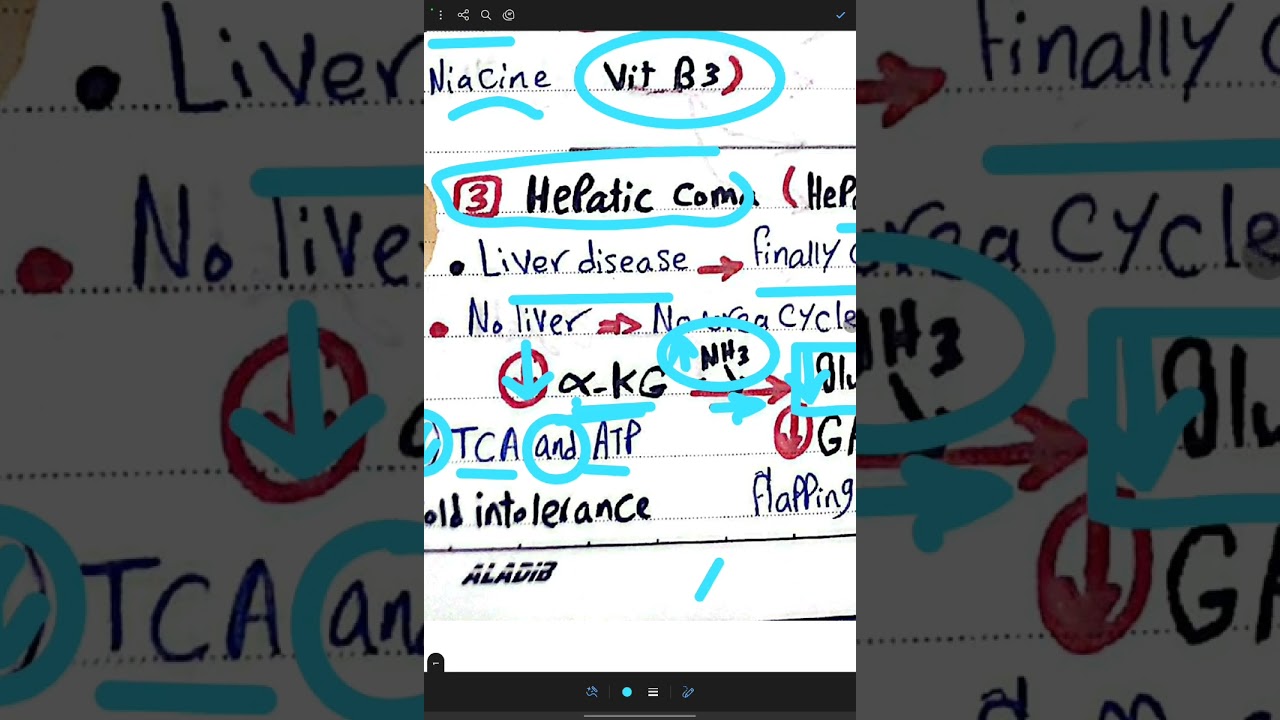 Niacine (Vit B3)
3 Hepatic Coma (Hep
• Liver disease → finally
• No liver ⇒ No urea cycle
↓ α-KG ↑ NH3 → ↓ glu
↓ TCA and ATP ↓ GA
old intolerance flapping
ALADIB